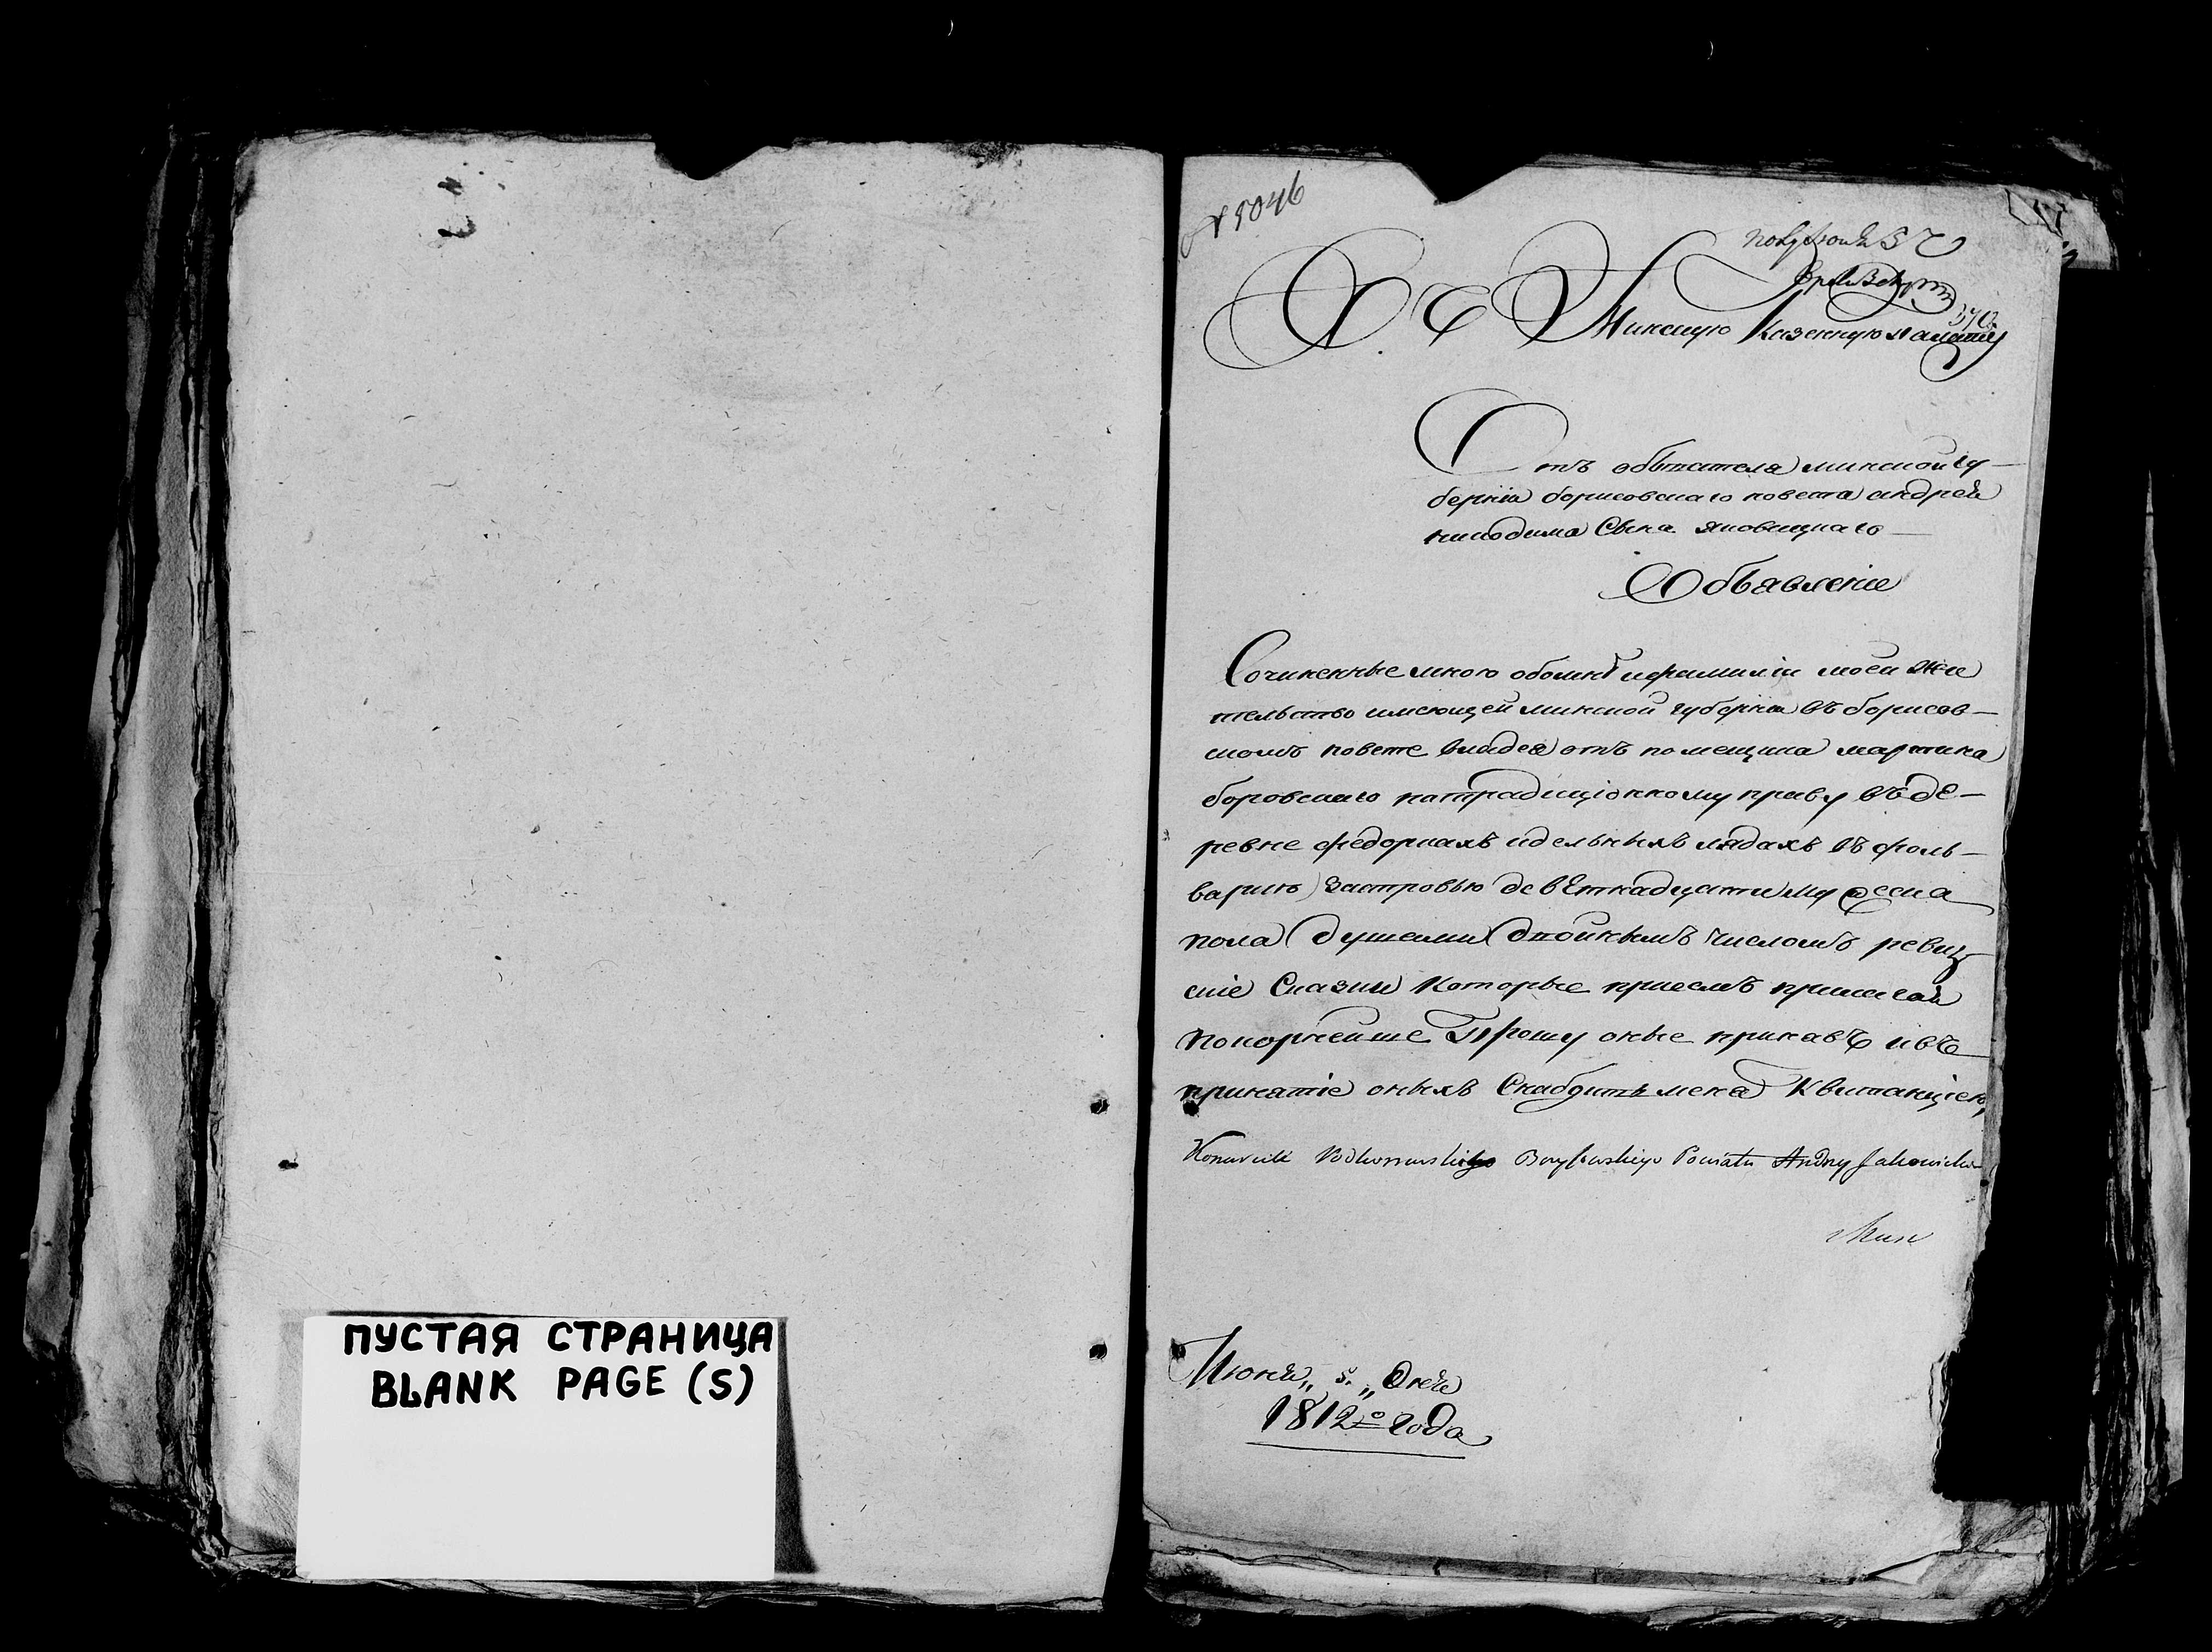 ПУСТАЯ СТРАНИЦА
BLANK PAGE (S)
№ 5046
Минскую Казенную палату
Отъ обывателя минской гу-
берніи борисовскаго повета андрей
никодима Сына яковицкаго
Объявленіе
Сочиненные мною обомне ифамиліи моей жи
тельство имеющей минской губерніи въ борисов-
скомъ повете владея отъ помещика мартина
боровскаго потрадиціонному праву въ де-
ревне федоркахъ идельныхъ лядахъ въ фоль-
варкъ
пола душами двойнымъ числомъ ревиз
скіе Сказки Которые присемъ прилагая
покорнейше Прошу оные принявъ ивъ
принятіе оныхъ Снабдить меня Квитанціею,
Borysowskiego Powiatu Andrzey Jakowicki
Июня „ 5. „ дня
1812го года